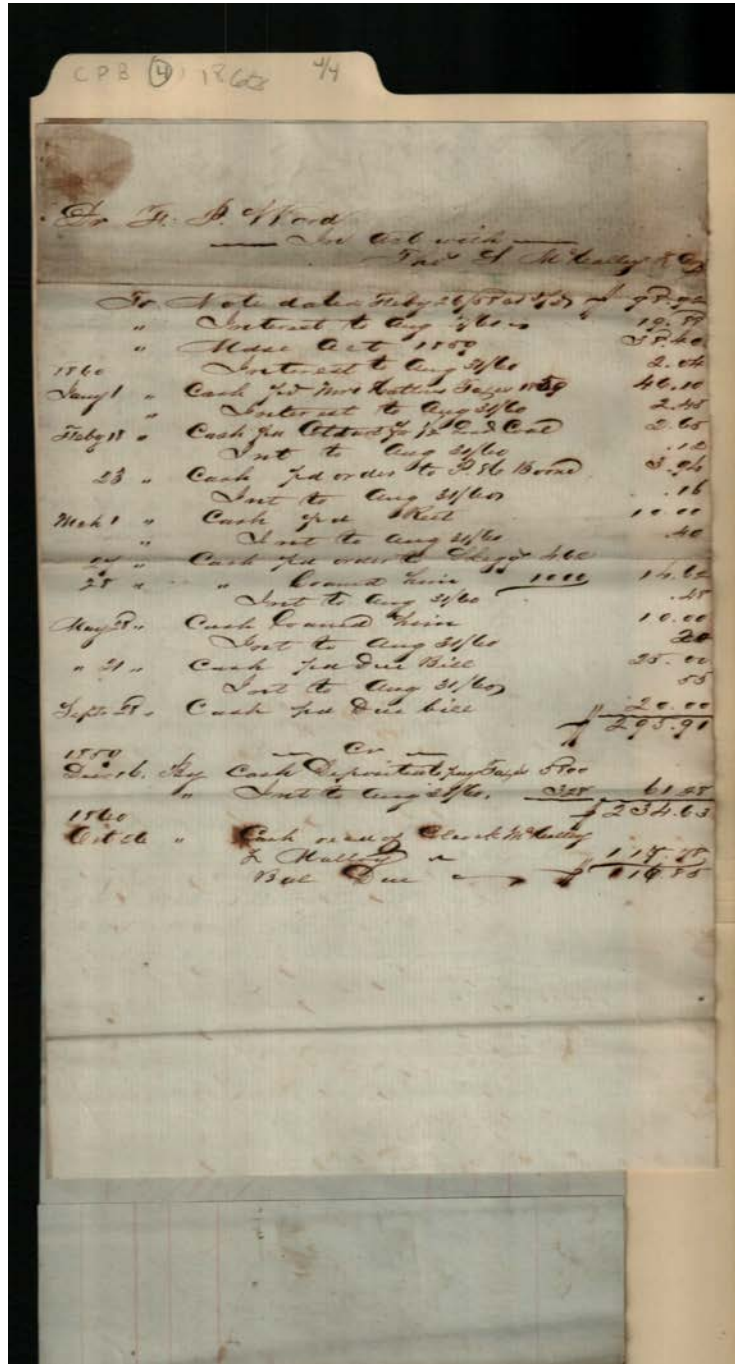 CPB (4) 1868 4/4
Dr H. P. Wood
In Act with
Jno L McCalley & Co
To Note dated Feby 26/58 $ 98.92
" Interest to Aug 31/60 19.89
" Mdse Act 1859 38.40
1860 Interest to Aug 31/60 2.04
Jany 1 " Cash pd Mrs Taxes 1859 46.10
" Interest to Aug 31/60 2.45
Feby 18 " Cash pd 2.65
Int to Aug 31/60 .12
23 " Cash pd order to Boone 3.94
Int to Aug 31/60 .16
Mch 1 " Cash pd 10.00
" Int to Aug 31/60 .40
" Cash pd order to 4.62
28 " " Loaned him 10.00 14.62
Int to Aug 31/60 .48
May 28 " Cash Loaned him 10.00
Int to Aug 31/60 20
" 21 " Cash pd Due Bill 25.00
Int to Aug 31/60 55
Sept 28 " Cash pd Due bill 20.00
$ 295.91
Cr
Dec 16. By Cash Deposited to pay Taxes 58.00
" Int to Aug 31/60 3.28 61.28
$ 234.63
1860
Oct " Cash recd of Clerk McCalley
117.78
Bal Due $ 116.85